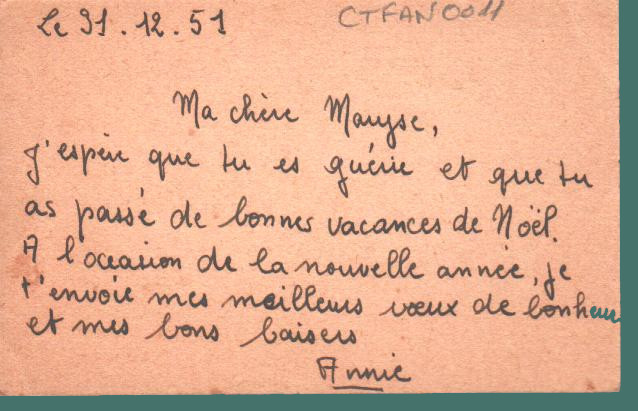 Le 31.12.51
CTFAN0011
Ma chère Maryse,
J'espère que tu es guérie et que tu
as passé de bonnes vacances de Noël.
A l'occasion de la nouvelle année, je
t'envoie mes meilleurs vœux de bonheur
et mes bons baisers
Annie